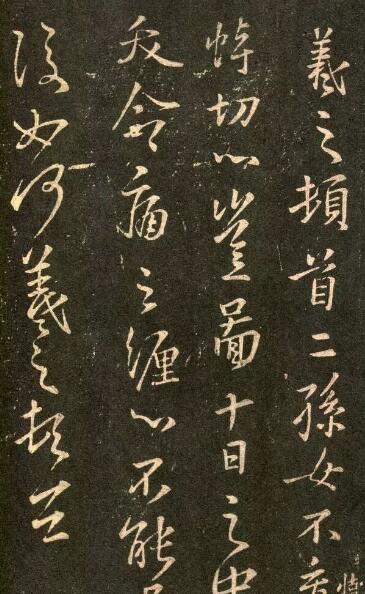 羲之頓首二孫女不育
悼切心豈圖十日之中
夭命痛之纏心不能已
復如何羲之頓首